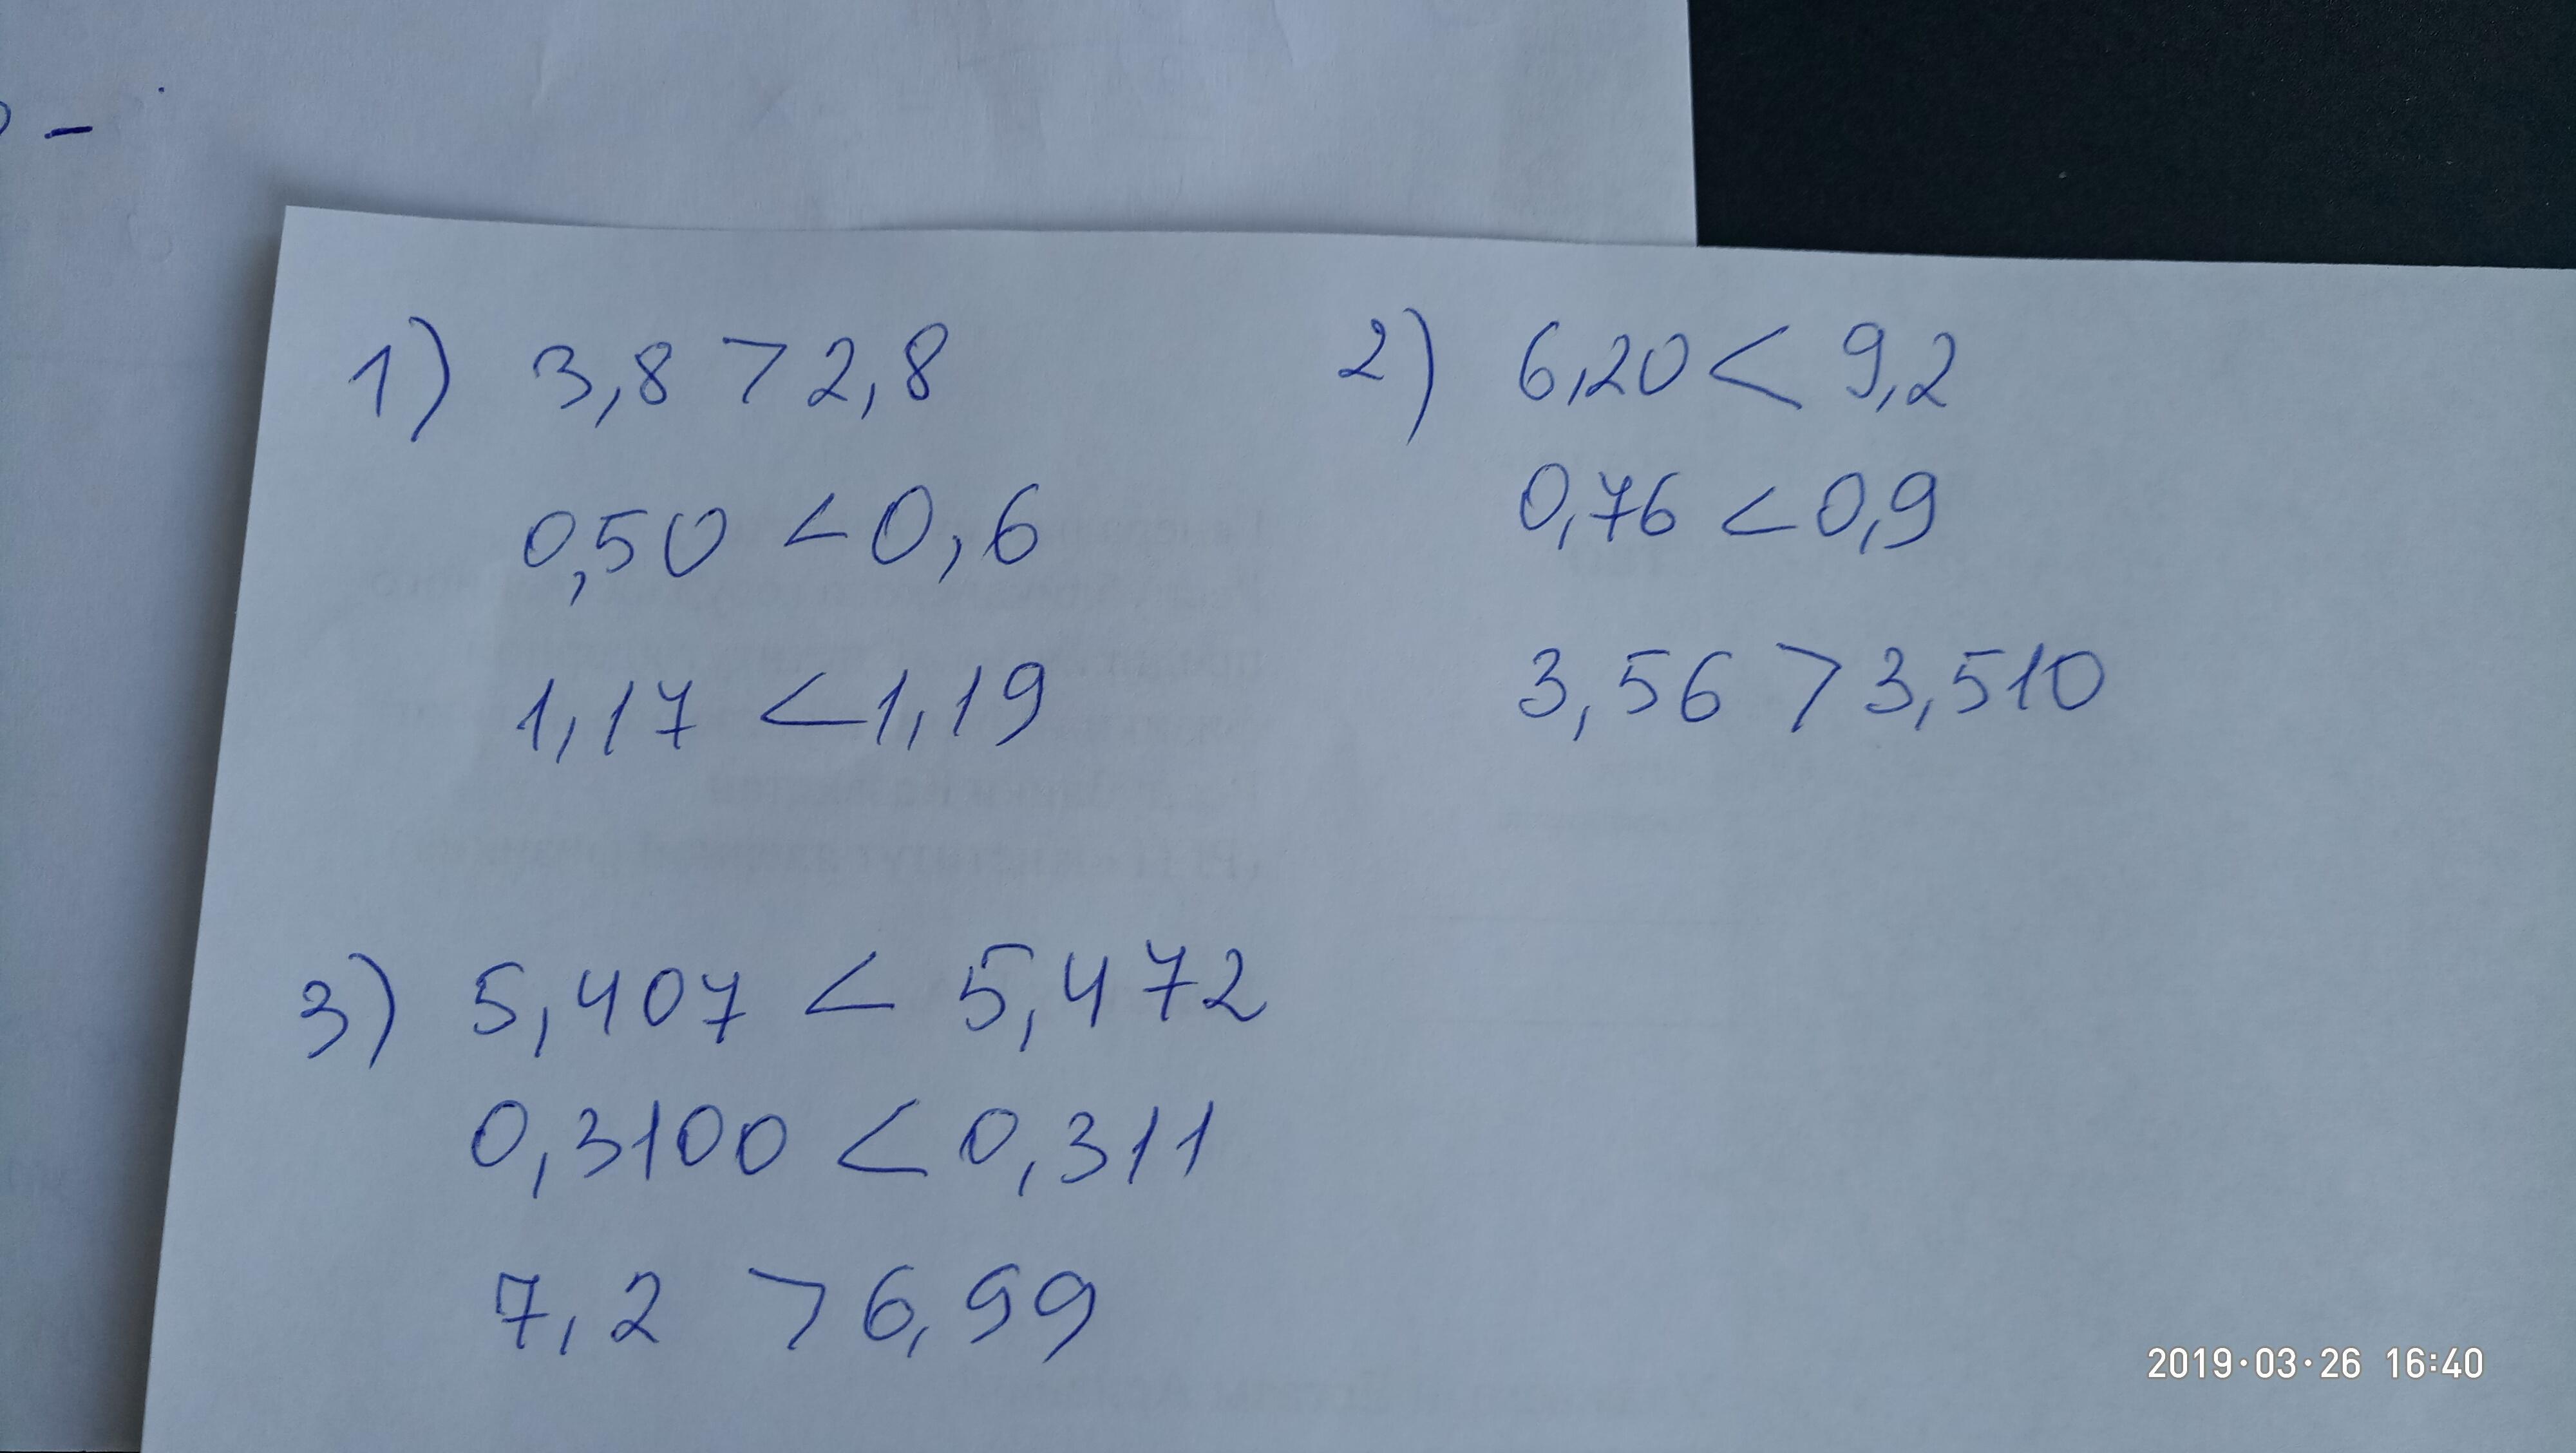 1) 3,8 > 2,8
0,50 < 0,6
1,17 < 1,19
2) 6,20 < 9,2
0,76 < 0,9
3,56 > 3,510
3) 5,407 < 5,472
0,3100 < 0,311
7,2 > 6,99
2019·03·26 16:40